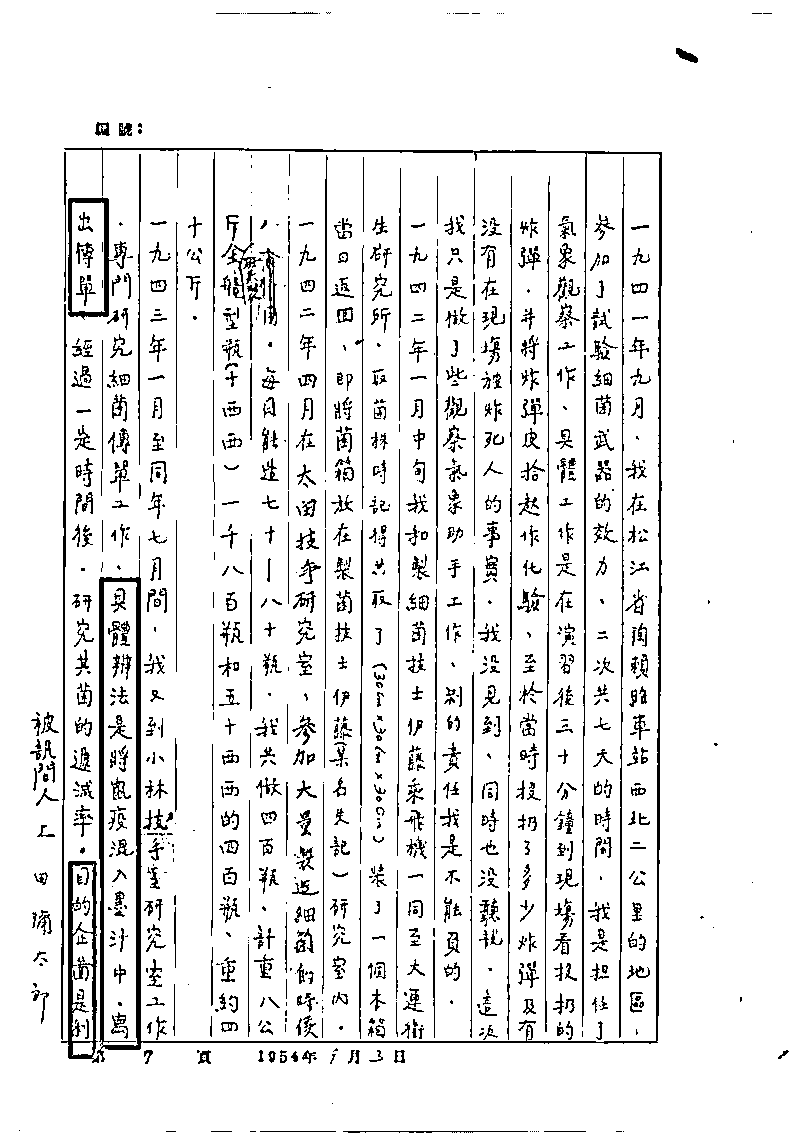 編號：
一九四一年九月、我在松江省陶賴昭車站西北二公里的地區，
參加了試驗細菌武器的效力、二次共七天的時間．我是担任了
氣象觀察工作、具體工作是在演習後三十分鐘到現場看投扔的
炸彈．并將炸彈皮拾起作化驗、至於當時投扔了多少炸彈及有
没有在現場被炸死人的事實．我没見到、同時也没聽説．這次
我只是做了些觀察氣象助手工作、别的責任我是不能負的．
一九四二年一月中旬我和製細菌技士伊藤乘飛機一同至大連衛
生研究所、取菌株時記得共取了 裝了一個木箱
當日返回、即將菌箱放在製菌技士伊藤(某名失記)研究室內．
一九四二年四月在太田技手研究室、參加大量製造細菌的時候
每日能造七十｜八十瓶．我共做四百瓶、計重八公
斤全 型瓶(千西西)一千八百瓶和五十西西的四百瓶、重約四
十公斤．
一九四三年一月至同年七月間，我又到小林技手室研究室工作
．專門研究細菌傳單工作、具體辦法是將鼠疫混入墨汁中．寫
出傳單、經過一定時間後．研究其菌的遞減率．目的企 是利
被訊問人 上田彌太郎
第 7 頁 1954年 月3日